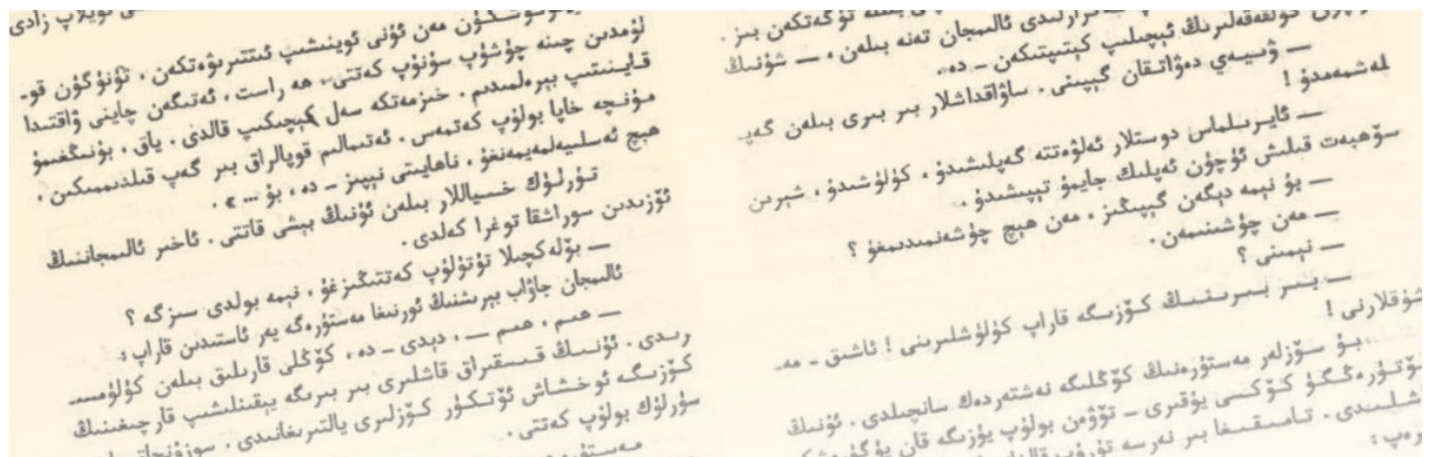 تۈگەتكەن بىز .
ئالىمجان تەنە بىلەن ، — شۇنىڭ
ئېچىلىپ كېتىپتىكەن ـ دە.
دەۋاتقان گېپىنى . ساۋاقداشلار بىر بىرى بىلەن گەپـ
لەشمەمدۇ !
— ئايرىلماس دوستلار ئەلۋەتتە گەپلىشىدۇ ، كۈلۈشىدۇ ، شېرىن
سۆھبەت قىلىش ئۈچۈن ئەپلىك جايمۇ تېپىشىدۇ .
— بۇ نېمە دېگەن گېپىڭىز ، مەن ھېچ چۈشەنمىدىمغۇ ؟
— مەن چۈشىنىمەن.
— نېمىنى ؟
— بىر بىرىنىڭ كۆزىگە قاراپ كۈلۈشلىرىنى ! ئاشىق ـ مەـ
شۇقلارنى !
بۇ سۆزلەر مەستۇرەنىڭ كۆڭلىگە نەشتەردەك سانچىلدى . ئۇنىڭ
كۆكسى يۇقىرى ـ تۆۋەن بولۇپ يۈزىگە قان
تامىقىغا بىر نەرسە تۇرۇپ
ئويلاپ زادى
مەن ئۇنى ئوينىشىپ ئىتتىرىۋەتكەن ، تۈنۈگۈن قوـ
لۇمدىن چىنە چۈشۈپ سۇنۇپ كەتتى. ھە راست ، ئەتىگەن چاينى ۋاقتىدا
قاينىتىپ بېرەلمىدىم . خىزمەتكە سەل كېچىكىپ قالدى . ياق ، بۇنىڭغىمۇ
مۇنچە خاپا بولۇپ كەتمەس . ئەتىمالىم قوپالراق بىر گەپ قىلدىممىكىن ،
ھېچ ئەسلىيەلمەيمەنغۇ ، ناھايىتى نېپىز ـ دە ، بۇ ... » .
تۈرلۈك خىياللار بىلەن ئۇنىڭ بېشى قاتتى . ئاخىر ئالىمجاننىڭ
ئۆزىدىن سوراشقا توغرا كەلدى .
— بۆلەكچىلا تۇتۇلۇپ كەتتىڭىزغۇ ، نېمە بولدى سىزگە ؟
ئالىمجان جاۋاب بېرىشنىڭ ئورنىغا مەستۇرەگە يەر ئاستىدىن قاراپ :
— ھىم ، ھىم — ، دېدى ـ دە ، كۆڭلى قارىلىق بىلەن كۈلۈمسىـ
رىدى . ئۇنىڭ قىسقىراق قاشلىرى بىر بىرىگە يېقىنلىشىپ قارچىغىنىڭ
كۆزىگە ئوخشاش ئۆتكۈر كۆزلىرى يالتىرىغانىدى .
سۈرلۈك بولۇپ كەتتى .